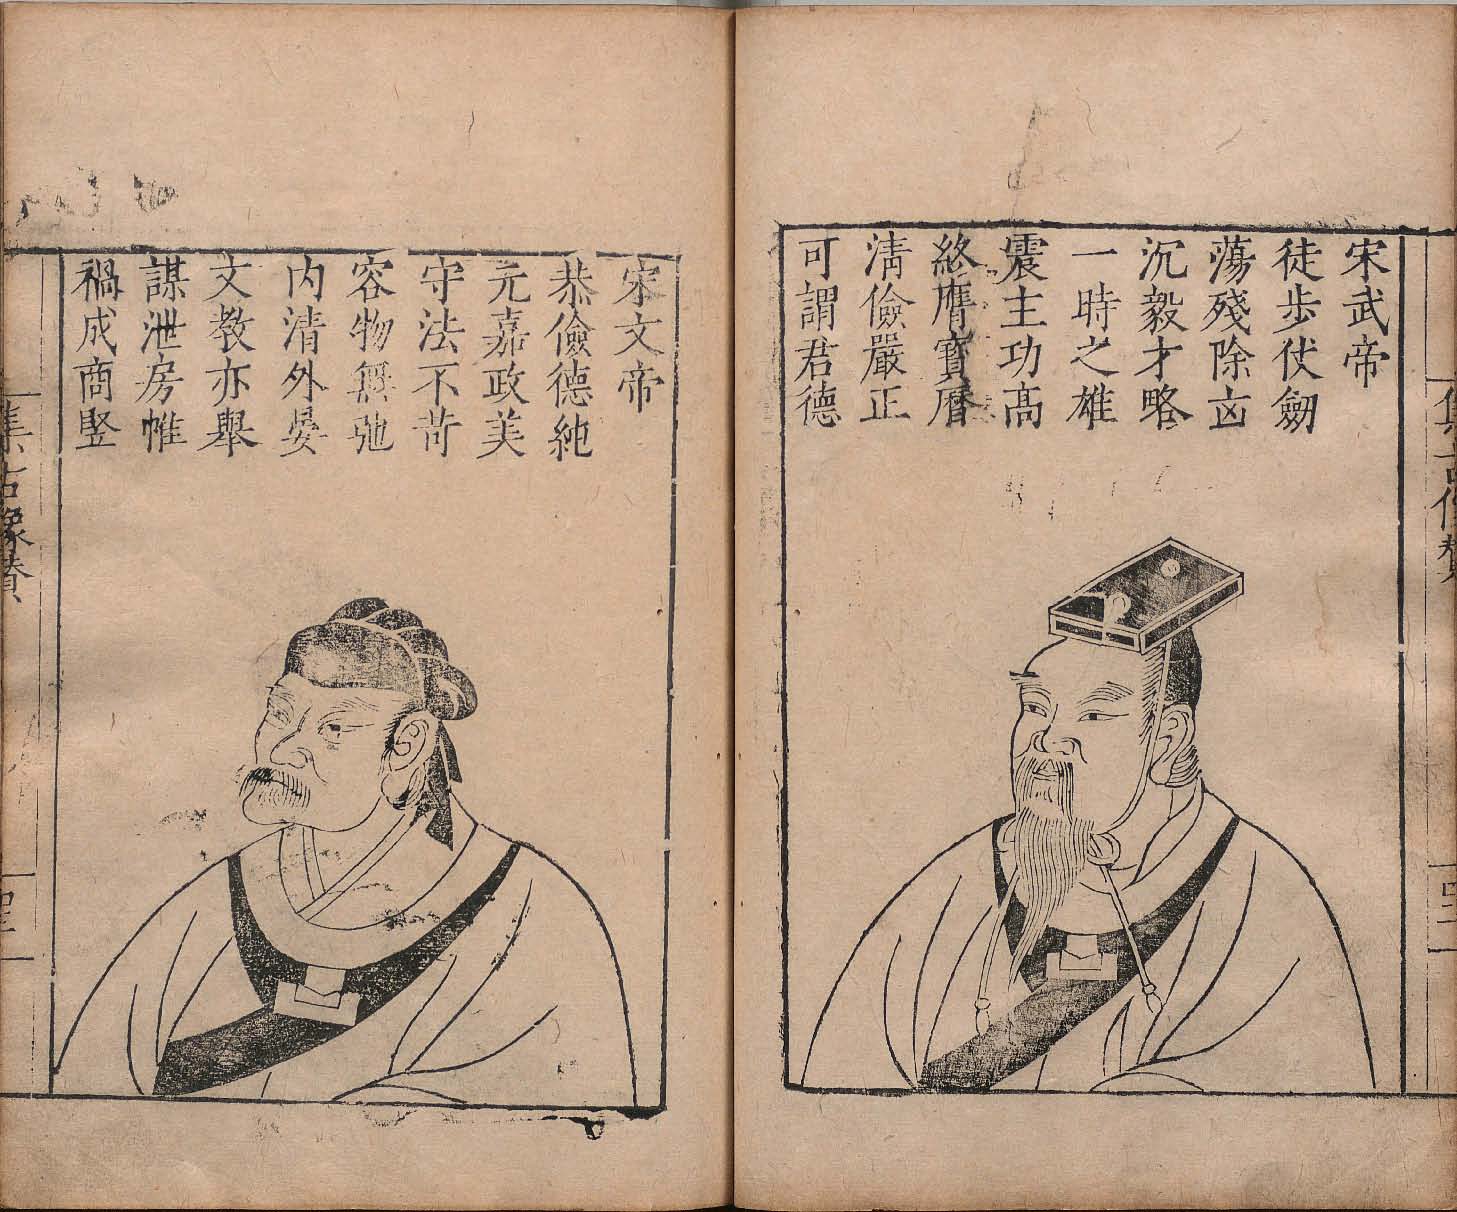 宋武帝
徒步仗劒
蕩殘除凶
沉毅才略
一時之雄
震主功高
終膺寳曆
清儉嚴正
可謂君德
集古像贊
宋文帝
恭儉德純
元嘉政美
守法不苛
容物無弛
内清外晏
文教亦舉
謀泄房帷
禍成商竪
集古像贊